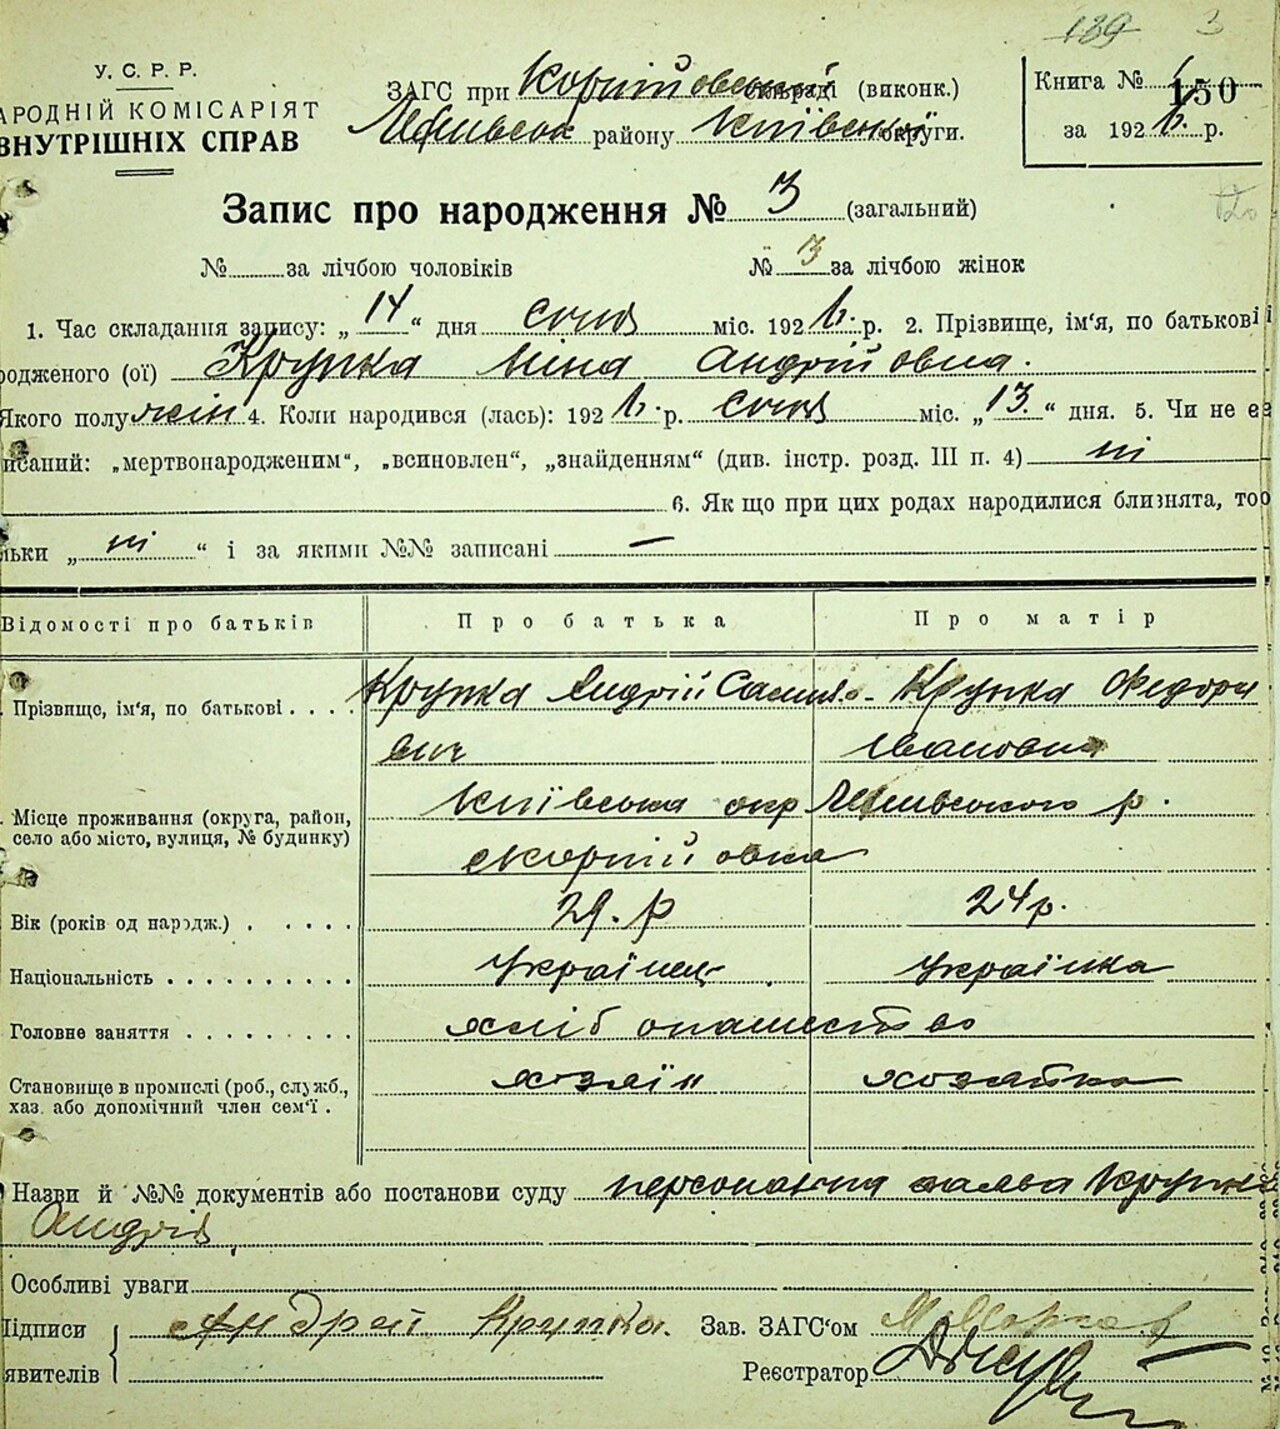 189 3
У. С. Р. Р.
АРОДНІЙ КОМІСАРІЯТ
ВНУТРІШНІХ СПРАВ
ЗАГС при Корнійовській сільраді (виконк.)
району Київської округи.
Книга № 1 150
за 1926 р.
Запис про народження № 3 (загальний)
№ за лічбою чоловіків № 3 за лічбою жінок
1. Час складання запису: „ 14 “ дня січня міс. 1926. р. 2. Прізвище, ім'я, по батькові і
родженого (ої) Крупка Ніна Андрійовна.
Якого полу жін 4. Коли народився (лась): 1926. р. січня міс. „ 13. “ дня. 5. Чи не є
исаний: „мертвонародженим“, „всиновлен“, „знайденням“ (див. інстр. розд. III п. 4) ні
6. Як що при цих родах народилися близнята, то
льки „ ні “ і за якими №№ записані —
Відомості про батьків Про батька Про матір
Прізвище, ім'я, по батькові . . . . Крупка Андрій Самило- Крупка Федора
вич Івановна
Місце проживання (округа, район, Київська окр р.
село або місто, вулиця, № будинку) с Корнійовка
Вік (років од народж.) . . . . . 29. р 24 р.
Національність . . . . . . . . . . Українець Українка
Головне заняття . . . . . . . . . хлібопашество
Становище в промислі (роб., служб., хозяїн хозяйка
хаз. або допомічний член сем'ї .
Назви й №№ документів або постанови суду персональна заява Крупки
Андрія.
Особливі уваги
Підписи Андрей Крупка. Зав. ЗАГС'ом
явителів Реєстратор